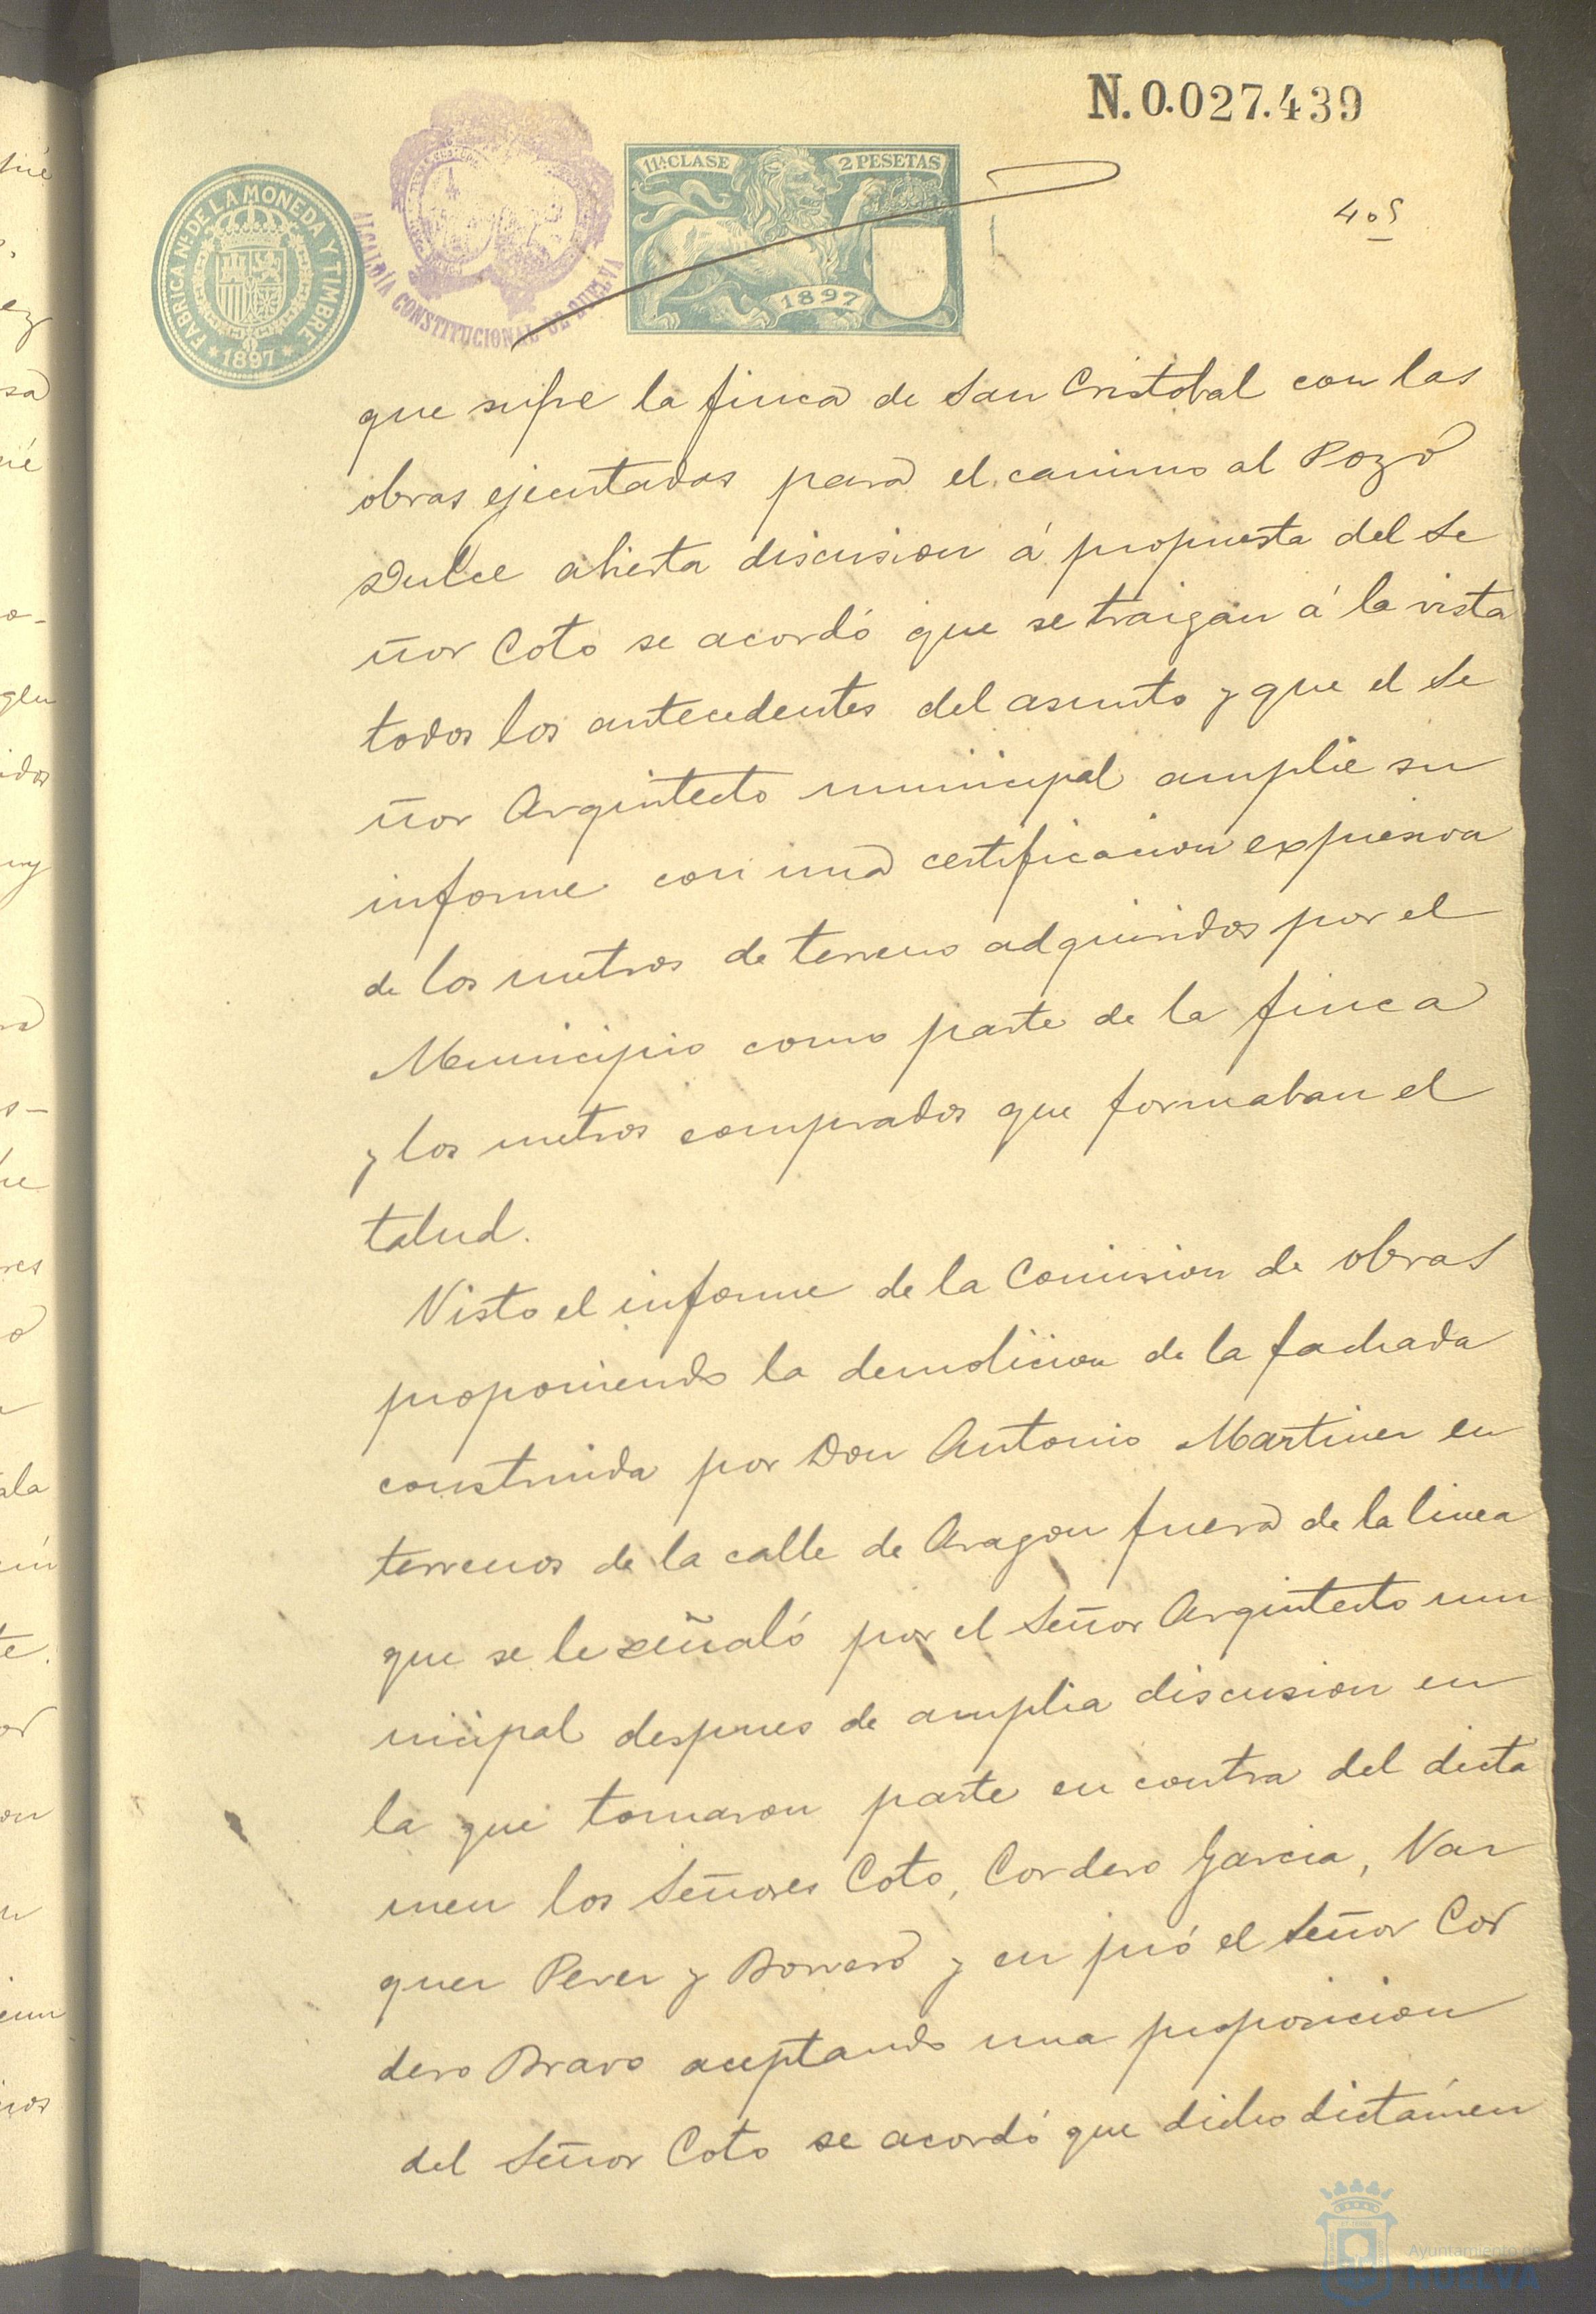 N. 0.027.439
FABRICA N.L DE LA MONEDA Y TIMBRE
* 1897 *
ALCALDÍA CONSTITUCIONAL DE HUELVA
11ª CLASE
2 PESETAS
1897
405
que sufre la finca de San Cristobal con las
obras ejecutadas para el camino al Pozo
Dulce abierta discusion á propuesta del Se
ñor Coto se acordó que se traigan á la vista
todos los antecedentes del asunto y que el Se
ñor Arquitecto municipal amplie su
informe con una certificacion expresiva
de los metros de terreno adquiridos por el
Municipio como parte de la finca
y los metros comprados que formaban el
talud.
Visto el informe de la Comision de obras
proponiendo la demolicion de la fachada
construida por Don Antonio Martinez en
terrenos de la calle de Aragon fuera de la linea
que se le señaló por el Señor Arquitecto mu
nicipal despues de amplia discusion en
la que tomaron parte en contra del dicta
men los Señores Coto, Cordero Garcia, Vaz
quez Perez y Borrero y en pró el Señor Cor
dero Bravo aceptando una proposicion
del Señor Coto se acordó que dicho dictámen
Ayuntamiento de
HUELVA